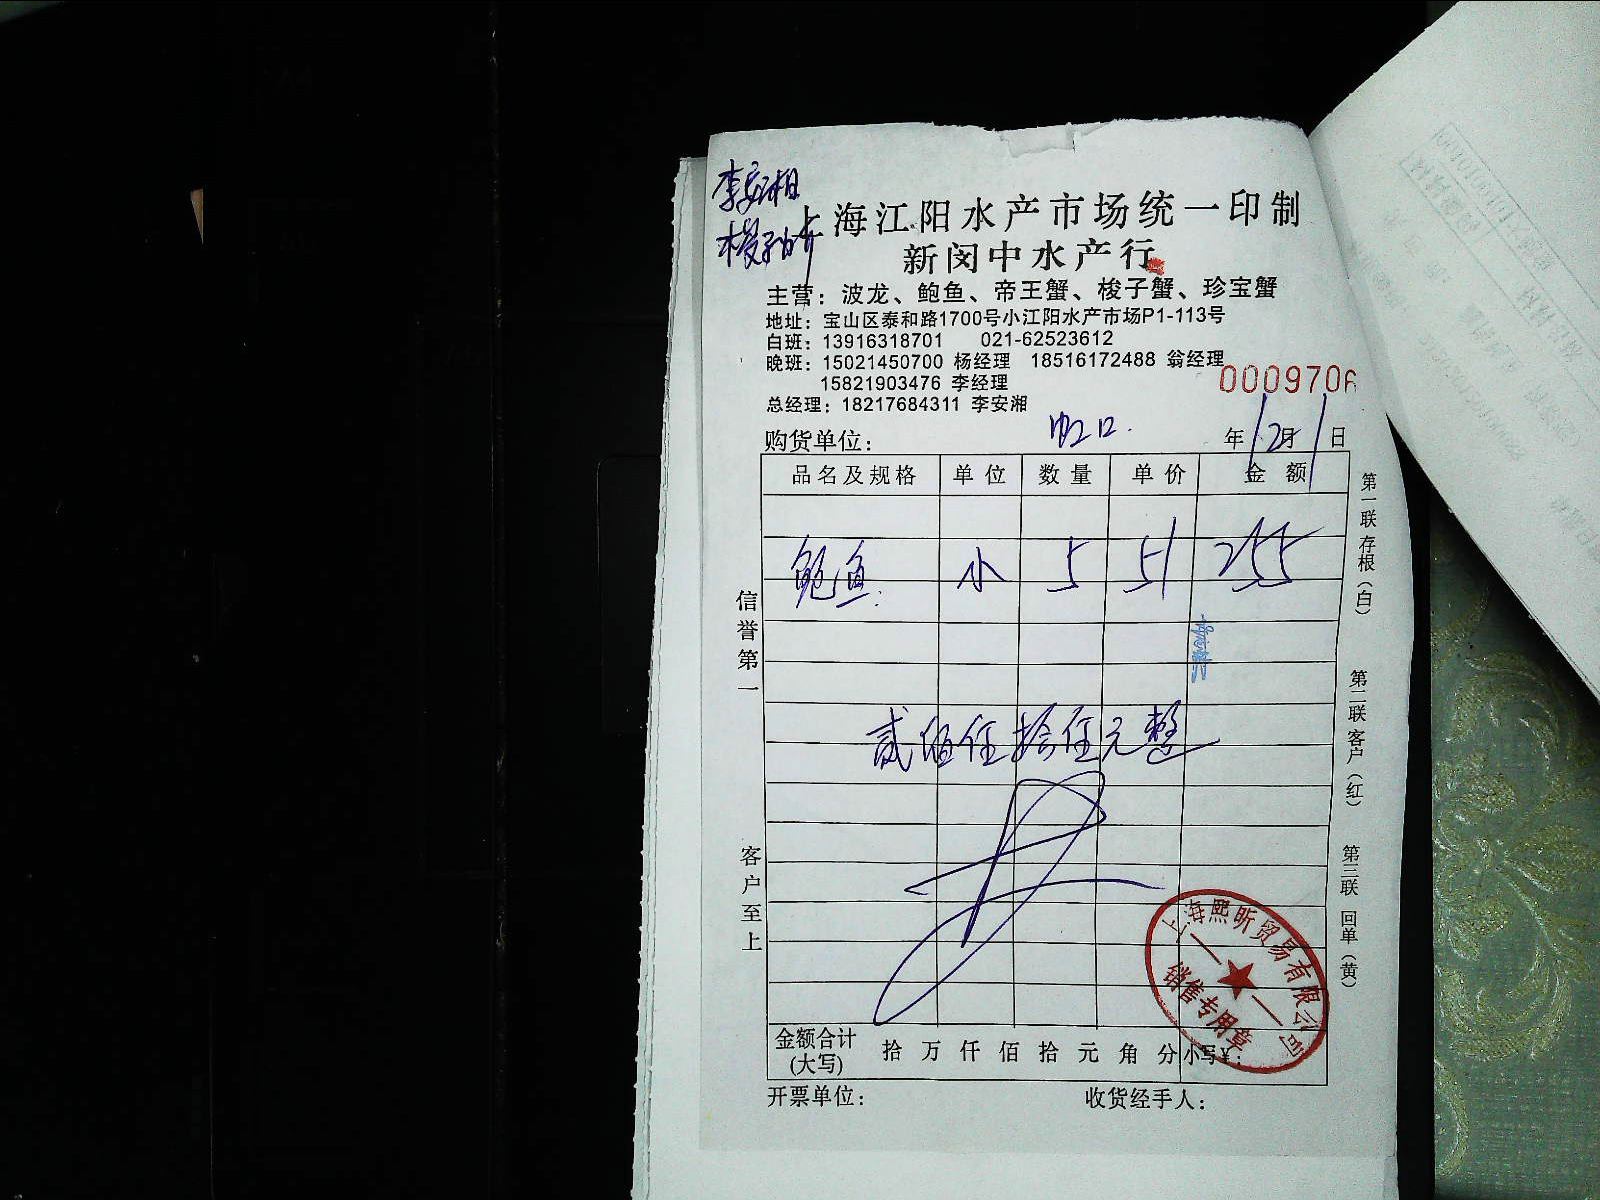 李安湘
上海江阳水产市场统一印制
新闵中水产行
主营：波龙、鲍鱼、帝王蟹、梭子蟹、珍宝蟹
地址：宝山区泰和路1700号小江阳水产市场P1-113号
白班：13916318701 021-62523612
晚班：15021450700 杨经理 18516172488 翁经理
15821903476 李经理
总经理：18217684311 李安湘
0009706
购货单位： 虹口. 年12月1日
品名及规格 单位 数量 单价 金额
鲍鱼 小 5 51 255
贰佰伍拾伍元整
金额合计(大写) 拾万仟佰拾元角分 小写￥：
开票单位： 收货经手人：
信誉第一
客户至上
第一联存根（白）
第二联客户（红）
第三联回单（黄）
上海熙昕贸易有限公司
销售专用章